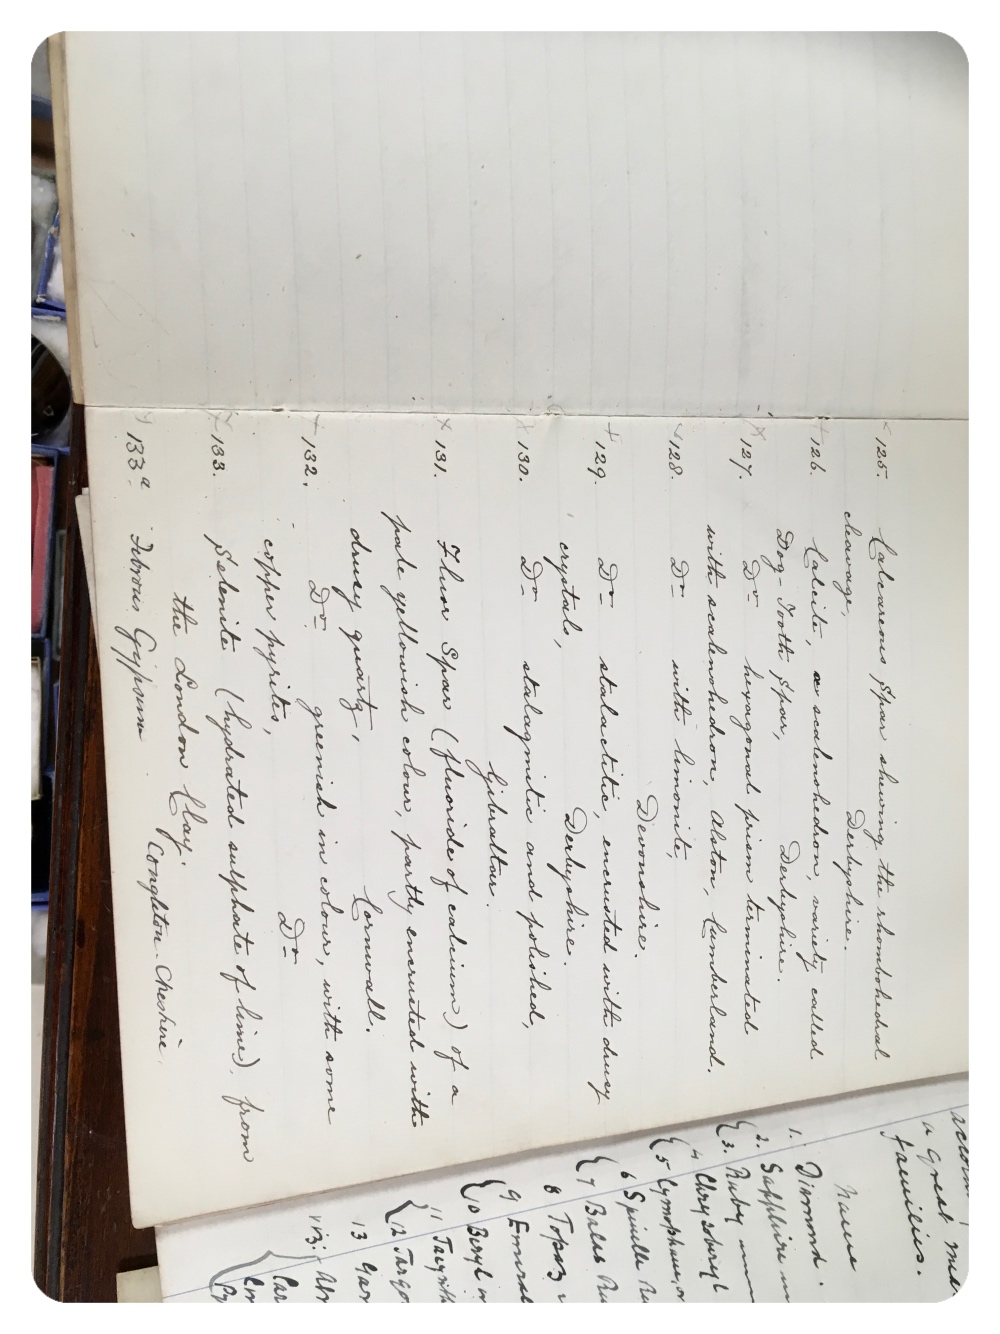 × 125. Calcareous Spar shewing the rhombohedral
cleavage, Derbyshire.
+ 126. Calcite, a scalenohedron, variety called
Dog-Tooth Spar, Derbyshire.
× 127. Do hexagonal prism terminated
with scalenohedron, Alston, Cumberland.
128. Do with limonite,
Devonshire.
+ 129. Do stalactitic, encrusted with drusy
crystals, Derbyshire.
× 130. Do stalagmitic and polished,
Gibraltar.
× 131. Fluor Spar (fluoride of calcium) of a
pale yellowish colour, partly encrusted with
drusy quartz, Cornwall.
+ 132. Do greenish in colour, with some
copper pyrites, Do
× 133. Selenite (hydrated sulphate of lime) from
the London Clay.
133a Fibrous Gypsum Congleton. Cheshire.
a great
families.
Name
1. Diamond.
2. Sapphire
3. Ruby
4 Chrysoberyl
5 Cymophane, or
6 Spinelle Ru
7 Balas Ru
8 Topaz
9 Emeral
10 Beryl
11 Jacynth
12 Turqo
13 Gar
viz: